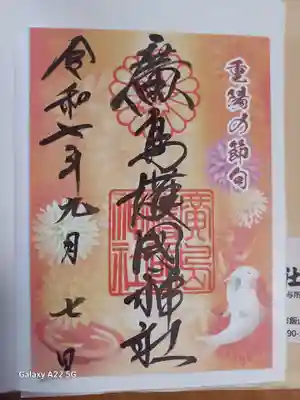 重陽の節句
廣島護國神社
廣島護國神社
令和七年九月七日
社
Galaxy A22 5G